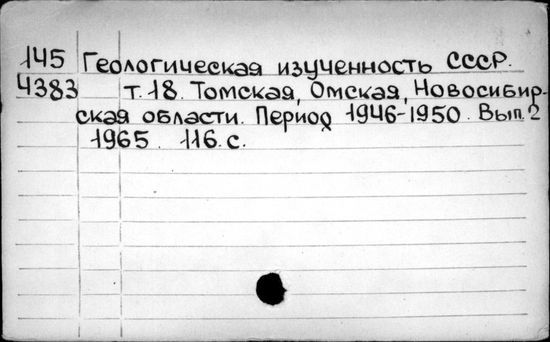 145 Геологическая изученность СССР.
4383 т. 18. Томская, Омская, Новосибир-
ская области. Период 1946-1950. Вып. 2
1965. 116. с.